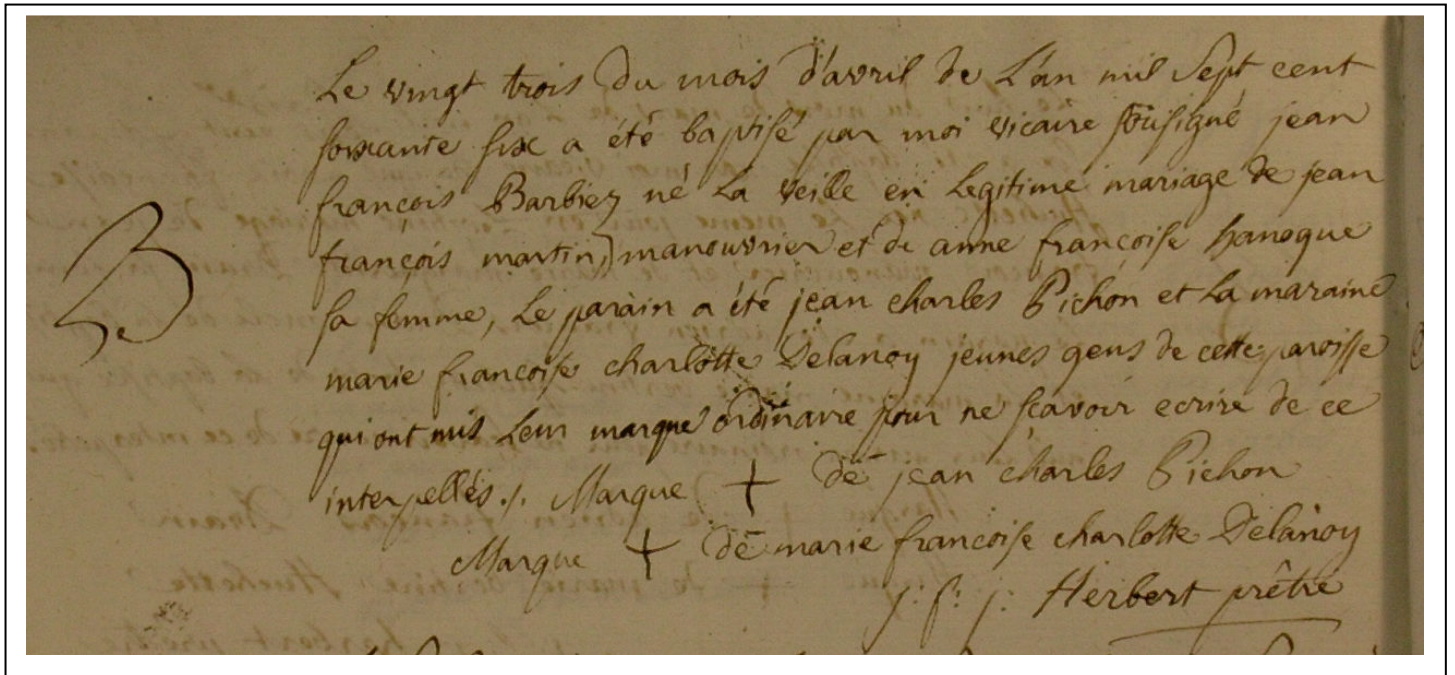 Le vingt trois du mois d'avril de L'an mil Sept cent
soixante six a été baptisé par moi vicaire sousigné jean
françois Barbiez né La veille en Legitime mariage de jean
françois martin manouvrier et de anne françoise hanoque
B
sa femme, Le parain a été jean charles Pichon et La maraine
marie françoise charlotte Delanoy jeunes gens de cette paroisse
qui ont mis Leur marque ordinaire pour ne sçavoir ecrire de ce
interpellés ./. Marque + de jean charles Pichon
Marque + de marie françoise charlotte Delanoy
j: f: j: Herbert prêtre